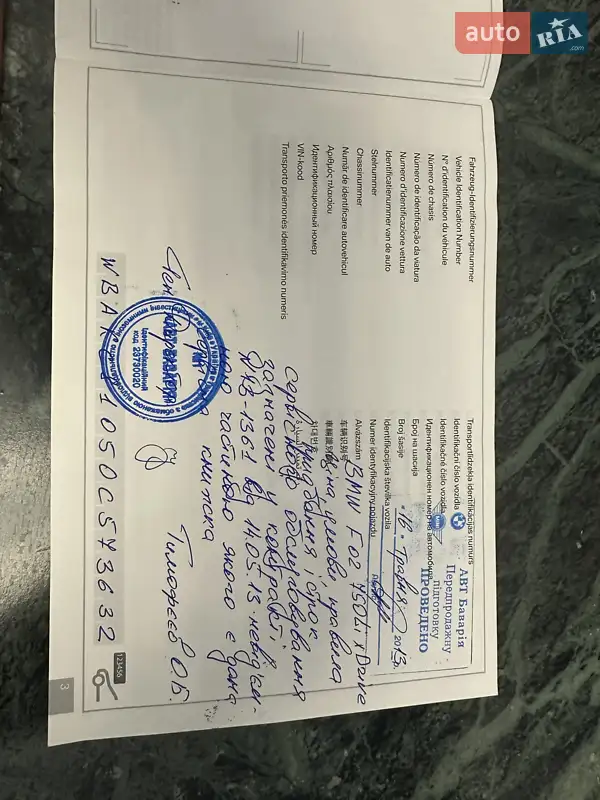 auto RIA.com
Fahrzeug-Identifizierungsnummer
Vehicle Identification Number
N° d'identification du véhicule
Número de chasis
Número de identificação da viatura
Numero d'identificazione vettura
Identificatienummer van de auto
Stelnummer
Chassinummer
Număr de identificare autovehicul
Αριθμός πλαισίου
Идентификационный номер
VIN-kood
Transporto priemonės identifikavimo numeris
Transportlīdzekļa identifikācijas numurs
Identifikační číslo vozidla
Identifikačné číslo vozidla
Идентификационен номер на автомобила
Број на шасија
Broj šasije
Identifikacijska številka vozila
Numer identyfikacyjny pojazdu
Alvázszám
车辆识别号
車輛識別號
차대번호
АВТ Баварія
Передпродажну
підготовку
ПРОВЕДЕНО
"16" Травня 2013
BMW F02 750Li xDrive
на умови, правила
придбання і строк
сервісного обслуговування
зазначені у контракті
№ 13-1361 від 14.05.13 невід'єм-
ною частиною якого є дана
книжка
Ідентифікаційний
код 23730020
Тимофєєв О.Б.
050C573632
123456
3